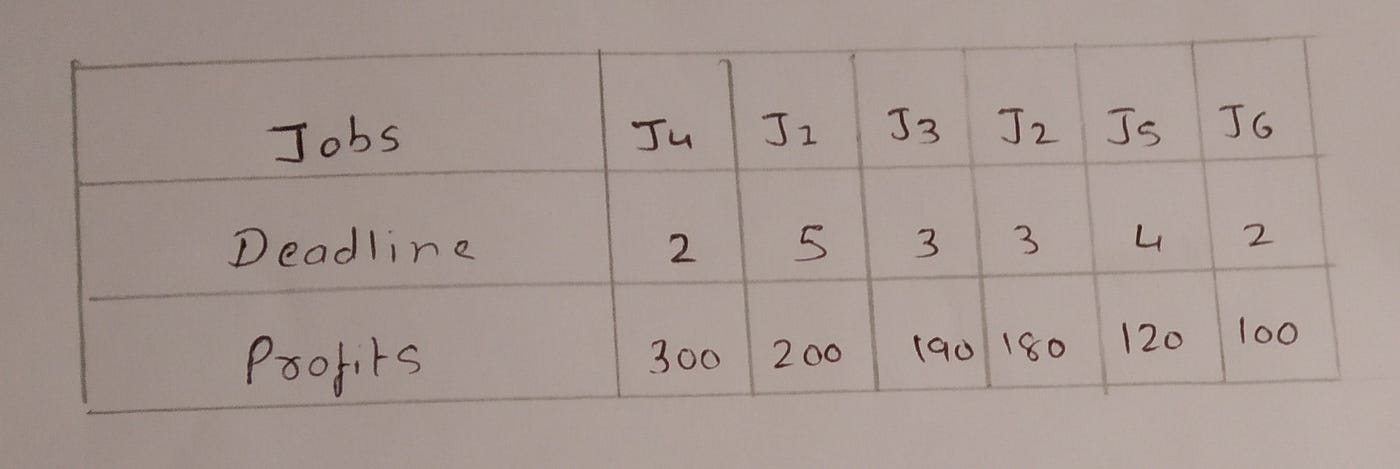 Jobs J4 J1 J3 J2 J5 J6
Deadline 2 5 3 3 4 2
Profits 300 200 190 180 120 100